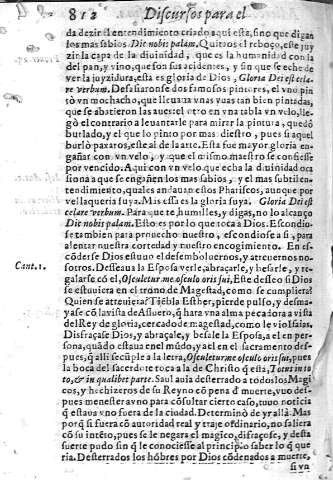 812 Discursos para el
da dezir el entendimiento criado aqui esta, sino que digan
los mas sabios Dic nobis palam. Quitaos el reboço, este juy
zir la capa de la diuinidad, que es la humanidad con la
del pan, y vino, que son sus acidentes, y sin que se eche de
ver la juyzidura, esta es gloria de Dios, Gloria Dei est cela-
re verbum. Desafiaronse dos famosos pintores, el vno pin
tò vn mochacho, que lleuaua vnas vuas tan bien pintadas,
que se abatieron las aues: el otro en vna tabla vn velo, lle-
gò el contrario a leuantarle para mirar la pintura, quedó
burlado, y el que lo pinto por mas diestro, pues si aquel
burlò paxaros, este al de la arte. Esta fue mayor gloria en-
gañar con vn velo, y que el mismo maestro se confiesse
por vencido. Aqui con vn velo que echa la diuinidad oca
siona a que se engañen los mas sabios, y el mas subtil en-
tendimiento, quales andauan estos Phariseos, aunque por
vellaqueria suya. Mas essa es la gloria suya. Gloria Dei est
celare verbum. Para que te humilles, y digas, no lo alcanço
Dic nobis palam. Esto es por lo que toca à Dios. Escondio-
se tambien para prouecho nuestro, escondiose a si, para
alentar nuestra cortedad y nuestro encogimiento. En es-
cõderse Dios estuuo el desemboluernos, y atreuernos no-
sotros. Desseaua la Esposa verle, abraçarle, y besarle, y re-
Cant. 1. galarse cõ el, Osculetur me osculo oris sui, Este desseo si Dios
se estuuiera en el trono de Magestad, como se cumpliera?
Quien se atreuiera? Tiẽbla Esther, pierde pulso, y desma-
yase cõ la vista de Assuero, q̃ hara vna alma pecadora a vista
del Rey de gloria, cercado de magestad, como le vio Isaias.
Disfraçase Dios, y abraçale, y besale la Esposa, a el en per
sona, quãdo estaua en el mũdo, y a el en el sacramento des-
pues, q̃ alli se cũple a la letra, Osculetur me osculo oris sui, pues
la boca del sacerdote toca a la de Christo q̃ està, Totus in to
to, & in qualibet parte. Saul auia desterrado a todos los Magi
cos, y hechizeros de su Reyno cõ pena d̃ muerte, vuo des-
pues menester vno para cõsultar cierto caso, tuuo noticia
q̃ estaua vno fuera de la ciudad. Determinò de yr allà. Mas
porq̃ si fuera cõ autoridad real y traje ordinario, no saliera
cõ su intẽto, pues se le negara el magico, disfraçose, y desta
suerte pudo sin q̃ le conociesse al principio saber lo que
queria. Desterrados los hõbres por Dios cõdenados a muerte,
si vn